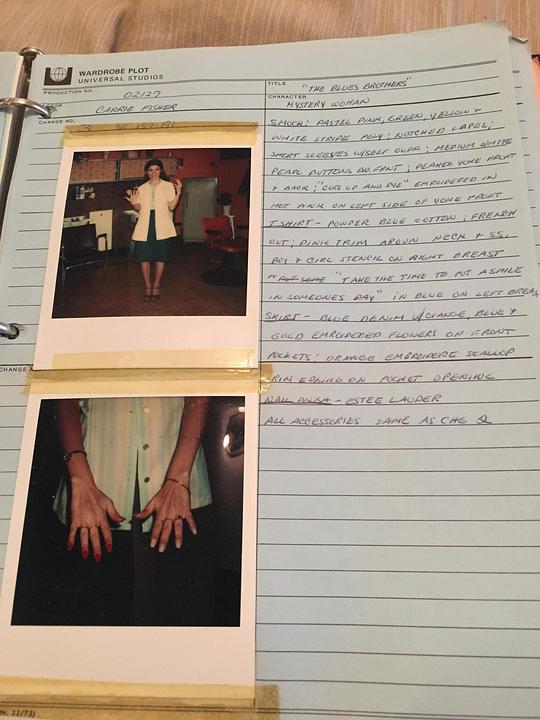 WARDROBE PLOT
UNIVERSAL STUDIOS
PRODUCTION NO. 02127
CARRIE FISHER
CHANGE NO.
TITLE "THE BLUES BROTHERS"
CHARACTER MYSTERY WOMAN
SMOCK: PASTEL PINK, GREEN, YELLOW +
WHITE STRIPE POLY; NOTCHED LAPEL;
SHORT SLEEVES W/SELF CUFF; MEDIUM WHITE
PEARL BUTTONS DN FRNT; PEAKED YOKE FRONT
+ BACK; "CURL UP AND DYE" EMBROIDERED IN
HOT PINK ON LEFT SIDE OF YOKE FRONT
T SHIRT - POWDER BLUE COTTON; FRENCH
CUT; PINK TRIM AROUN NECK + SS,
BOY + GIRL STENCIL ON RIGHT BREAST
"TAKE THE TIME TO PUT A SMILE
IN SOMEONES DAY" IN BLUE ON LEFT BREAS
SKIRT - BLUE DENIM W/ORANGE, BLUE +
GOLD EMBROIDERED FLOWERS ON FRONT
POCKETS; ORANGE EMBROIDERE SCALLOP
TRIM EDGING ON POCKET OPENING
NAIL POLISH - ESTEE LAUDER
ALL ACCESSORIES SAME AS CHG 2
CHANGE
11/73)